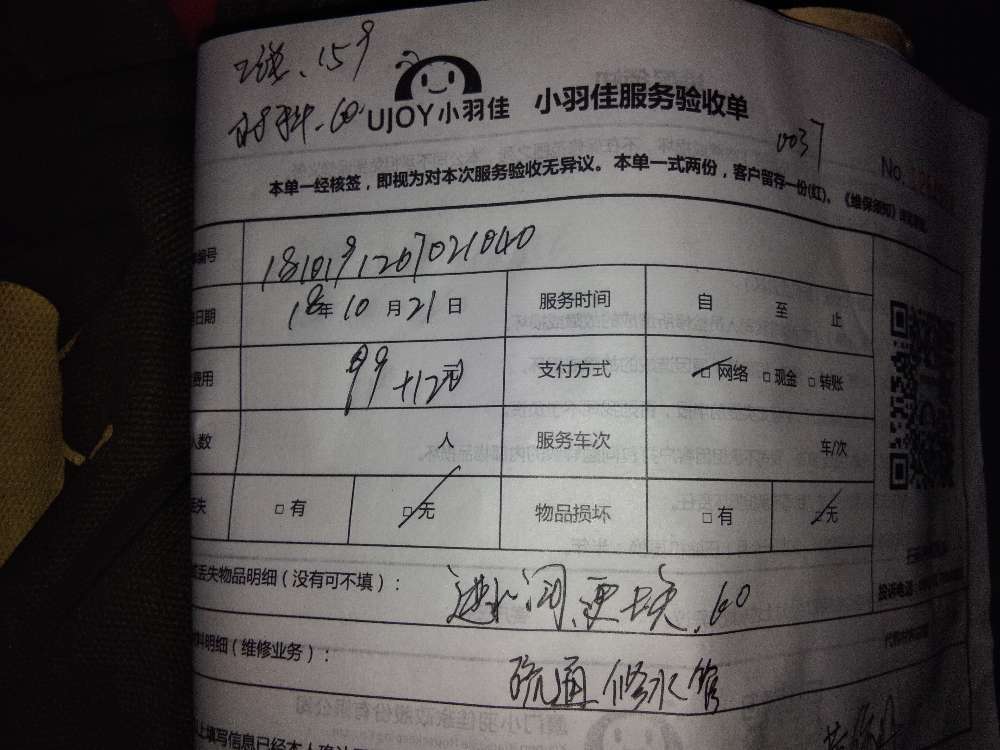 159
材料.60
UJOY小羽佳 小羽佳服务验收单
0037
No.
本单一经核签，即视为对本次服务验收无异议。本单一式两份，客户留存一份(红)。《维保须知》
编号 1810191267021040
日期 18年10月21日 服务时间 自 至 止
费用 99+12元 支付方式 □网络 □现金 □转账
人数 人 服务车次 车/次
丢失 □有 □无 物品损坏 □有 □无
丢失物品明细（没有可不填）： 进水阀.更换.60
料明细（维修业务）： 疏通 修水管
投诉电话
上填写信息已经本人确认